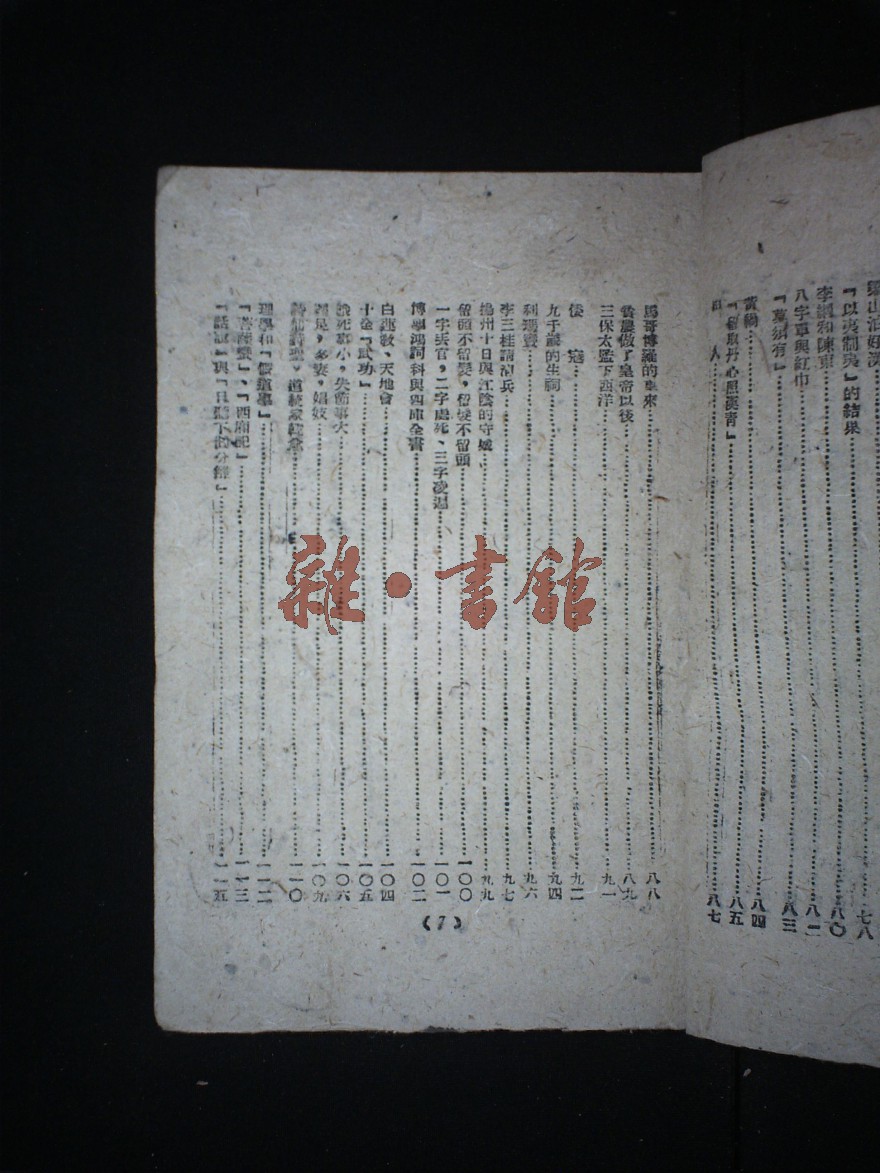 『以夷制夷』的結果……七八
李綱和陳東……八〇
八字軍與紅巾……八二
『莫須有』……八三
黃……八四
『留取丹心照漢青』……八五
人……八七
馬哥博羅的東來……八八
做了皇帝以後……八九
三保太監下西洋……九一
倭 寇……九二
九千歲的生祠……九四
利瑪竇……九六
李三桂請清兵……九七
揚州十日與江陰的守城……九九
留頭不留髮，留髮不留頭……一〇〇
一字丟官，二字處死、三字凌遲……一〇一
博學鴻詞科與四庫全書……一〇二
白蓮教、天地會……一〇四
十全『武功』……一〇五
餓死事小，失節事大……一〇六
足，多妻，娼妓……一〇九
……一一〇
理學和『假道學』……一一二
『西廂記』……一一三
『話說』與『且聽下回分解』……一一五
(7)
雜·書館